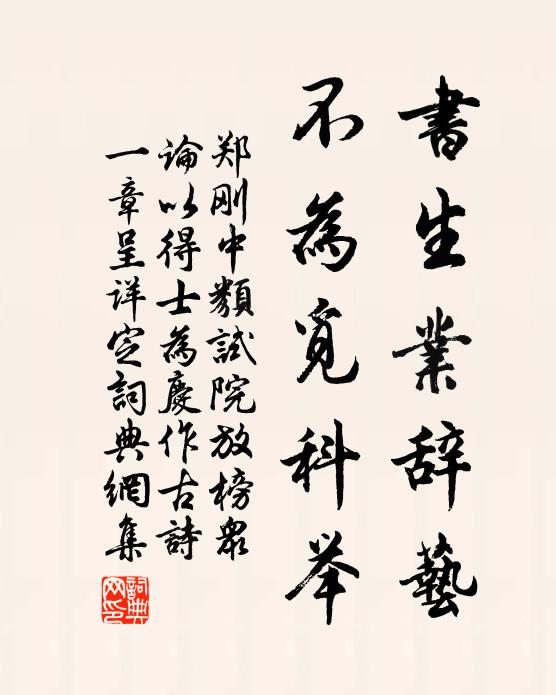 書生業辞藝
不為覓科举
郑刚中類試院放榜眾
論以得士為慶作古詩
一章呈详定詞典網集
詞典网印